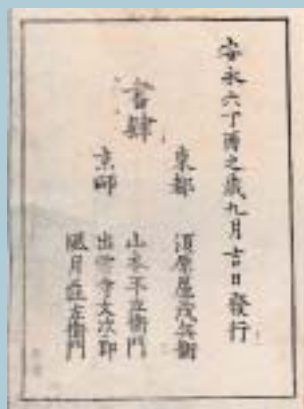 安永六丁酉之歳九月吉日發行
書肆
東都
須原屋茂兵衛
京師
山本平左衛門
出雲寺文次郎
風月荘左衛門